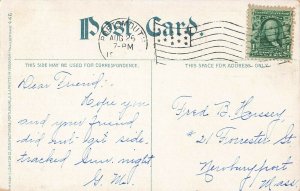 Post Card.
AUG 26
7-PM
THIS SIDE MAY BE USED FOR CORRESPONDENCE.
THIS SPACE FOR ADDRESS ONLY.
Dear Friend:-
Hope you
and your friend
did not get side-
tracked Sun. night
G. M.
Fred B. Hussey,
#21 Forrester St
Newburyport
Mass.